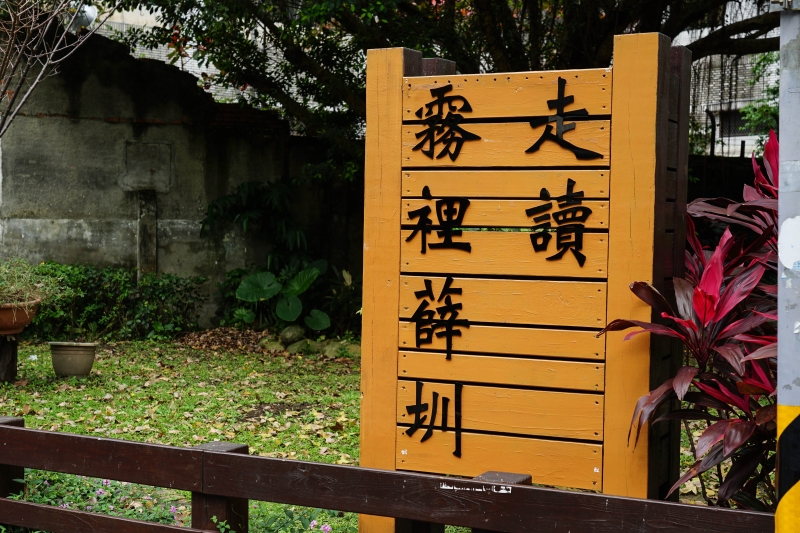 走讀
霧裡薛圳